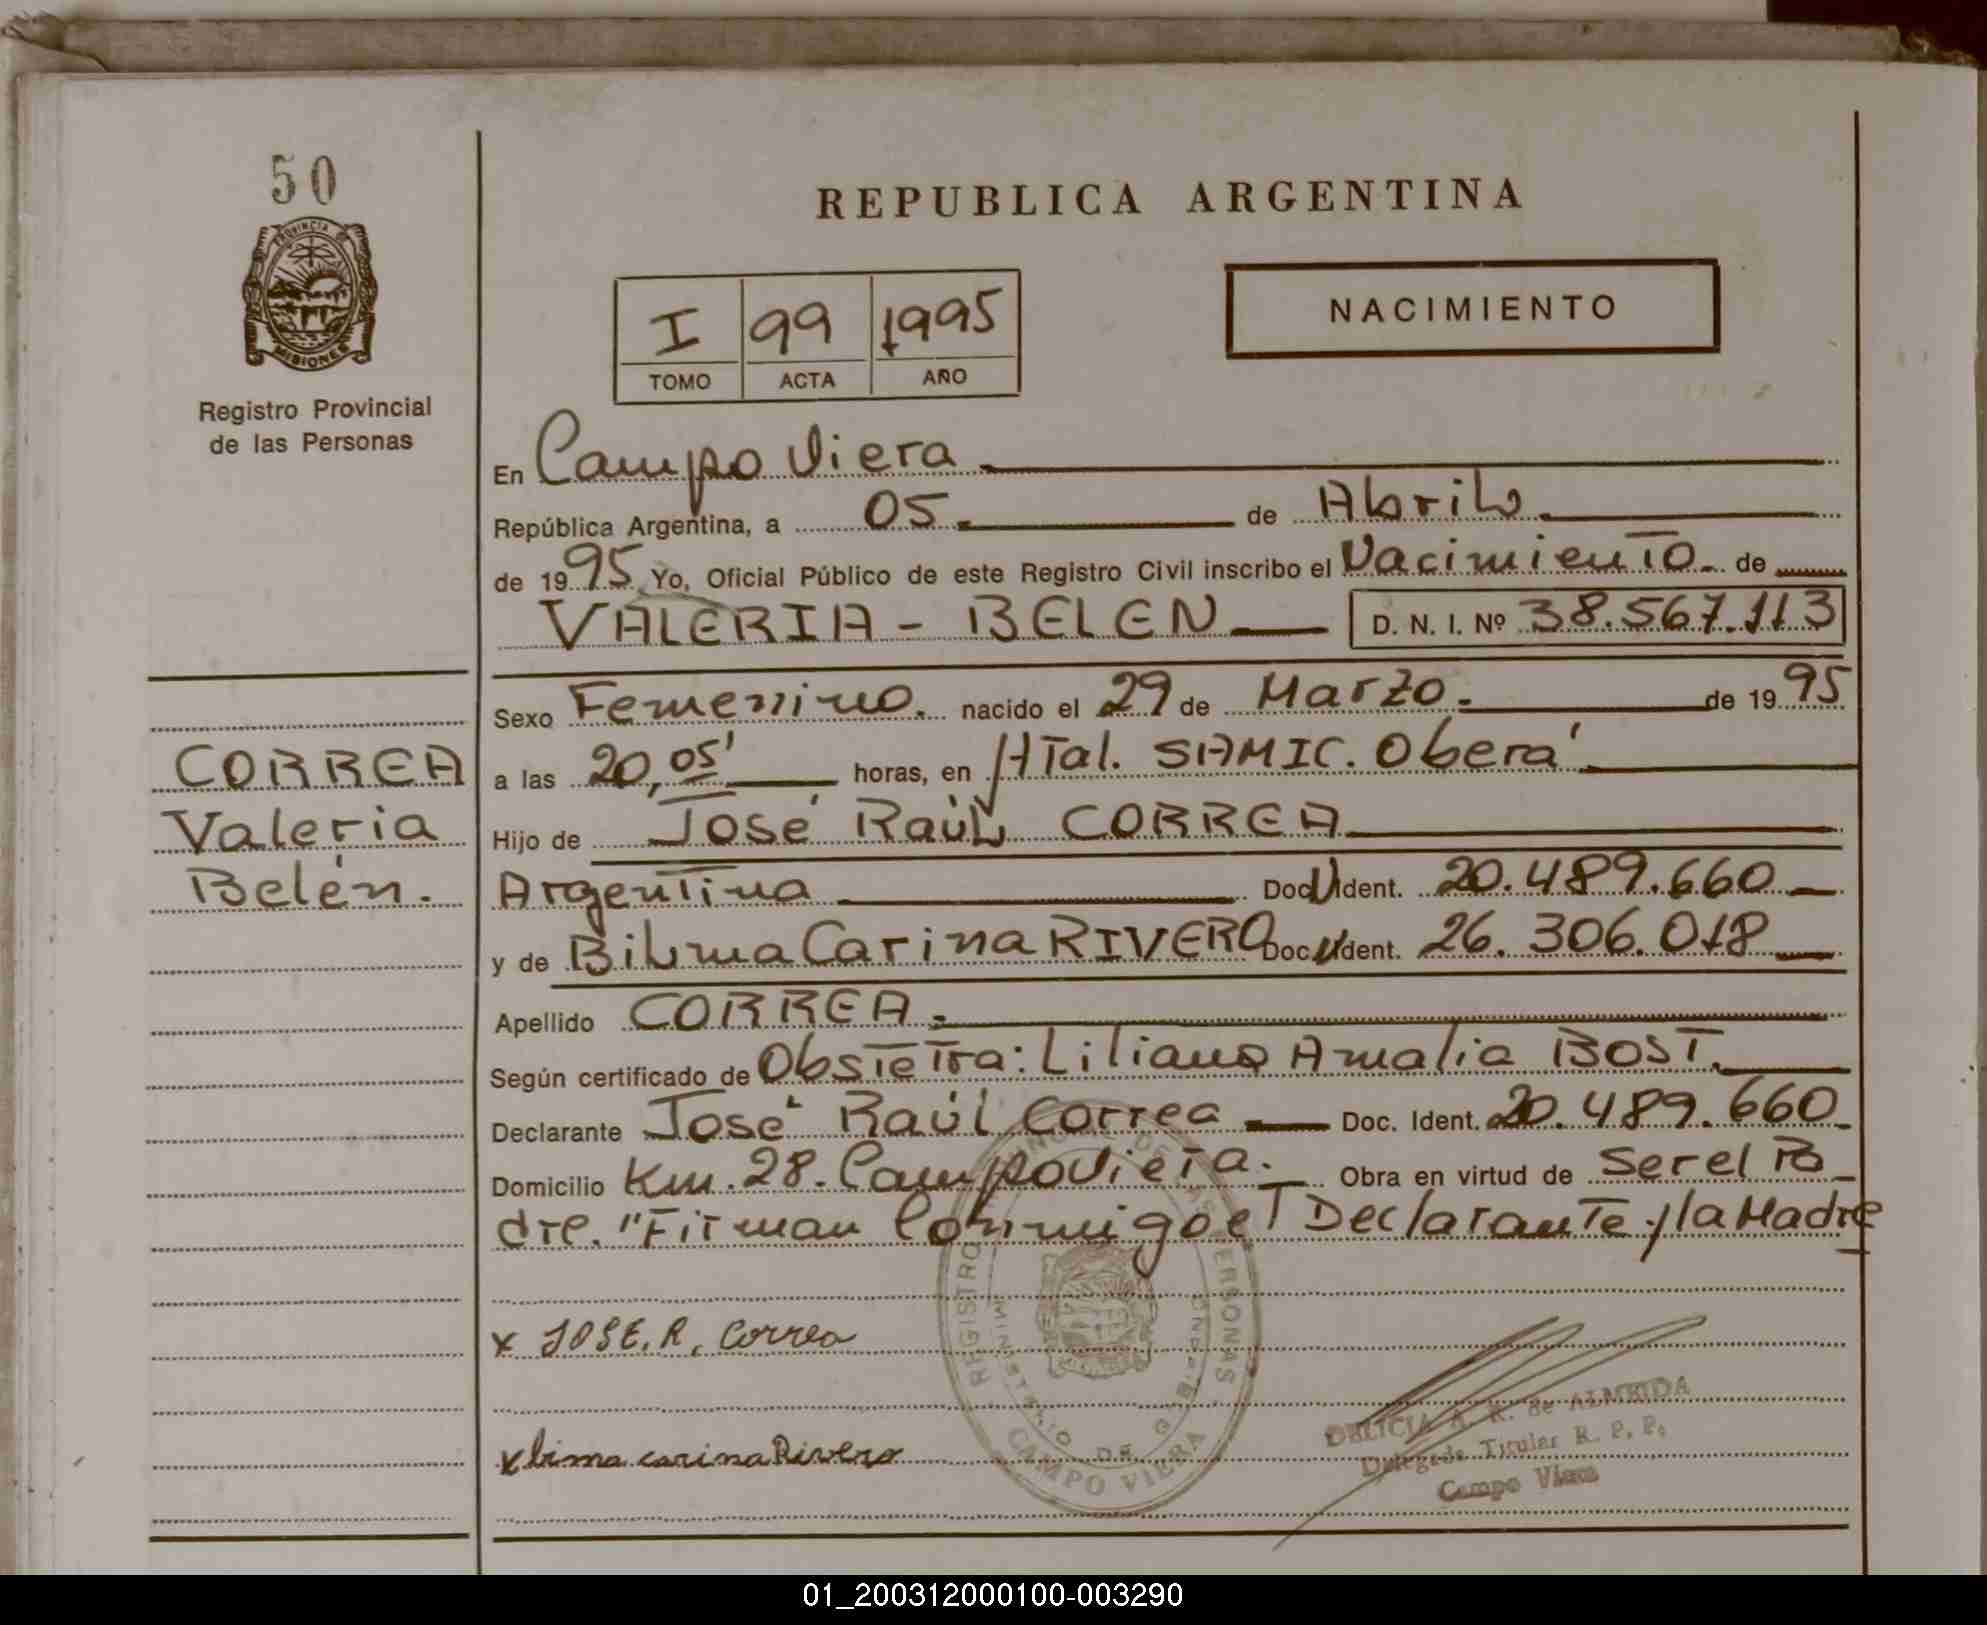 50
PROVINCIA DE
MISIONES
Registro Provincial
de las Personas
REPUBLICA ARGENTINA
I 99 1995
TOMO ACTA AÑO
NACIMIENTO
En Campo Viera
República Argentina, a 05. de Abril.
de 1995. Yo, Oficial Público de este Registro Civil inscribo el Nacimiento. de
VALERIA - BELEN D. N. I. Nº 38.567.113
Sexo Femenino. nacido el 29 de Marzo. de 1995
a las 20,05' horas, en HTal. SAMIC. Oberá
CORREA
Valeria
Belén.
Hijo de José Raúl CORREA
Argentina Doc. Ident. 20.489.660
y de Bilma Carina RIVERO Doc. Ident. 26.306.018
Apellido CORREA.
Según certificado de Obstetra: Liliana Amalia BOST.
Declarante José Raúl Correa Doc. Ident. 20.489.660
Domicilio Km. 28. Campo Viera. Obra en virtud de Ser el Pa
dre. "Firman Conmigo el Declarante y la Madre
x JOSE, R, Correa
x bima carina Rivero
REGISTRO DE LAS PERSONAS
MINISTERIO DE
CAMPO VIERA
DELICIA A. R. de ALMEIDA
Delegada Titular R. P. P.
Campo Viera
01_200312000100-003290